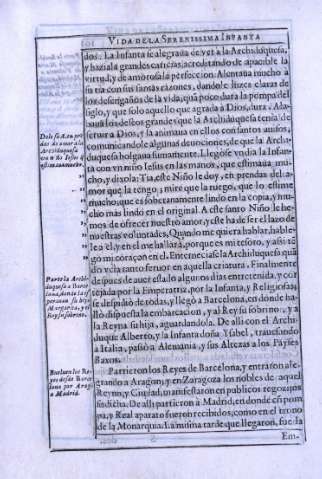 VIDA DE LA SERENISSIMA INFANTA
dos. La Infanta se alegraua de ver à la Archiduquesa,
y haziala grandes caricias, acreditando de apacible la
virtud, y de amorosa la perfeccion. Alentaua mucho a
su tia con sus santas razones, dandole luzes claras de
los desengaños de la vida, quã poco dura la pompa del
siglo, y que solo aquello que agrada a Dios, dura. Ala-
baua los desseos grandes que la Archiduquesa tenia de
seruir a Dios, y la animaua en ellos con santos auisos,
comunicandole algunas deuociones, de que la Archi-
duquesa holgaua sumamente. Llegose vn dia la Infan-
ta con vn niño Iesus en las manos, que estimaua mu-
cho, y dixola: Tia, este Niño le doy, en prendas del a-
mor que la tengo; mire que la ruego, que lo estime
mucho, que es soberanamente lindo en la copia, y mu-
cho mas lindo en el original. A este santo Niño le he-
mos de ofrecer nuestro amor, y este ha de ser el lazo de
nuestras voluntades. Quando me quiera hablar, hable-
le a èl, y en el me hallarà, porque es mi tesoro, y assi tẽ
go mi coraçon en el. Enternecia se la Archiduquesa quã
do veia tanto feruor en aquella criatura. Finalmente
despues de auer estado algunos dias entretenida, y cor
tejada por la Emperatriz, por la Infanta, y Religiosas,
se despidiò de todas, y llegò a Barcelona, en donde ha-
llò dispuesta la embarcacion, y al Rey su sobrino, y a
la Reyna su hija, aguardandola. De alli con el Archi-
duque Alberto, y la Infanta doña Ysabel, transitando
a Italia, passò a Alemania, y sus Altezas a los Payses
Baxos.
Partieron los Reyes de Barcelona, y entraron ale-
grando a Aragon; y en Zaragoza los nobles de aquel
Reyno, y Ciudad, manifestaron en publicos regozijos
su dicha. De alli partieron a Madrid, en donde cõ pom
pa, y Real aparato fueron recibidos, como en el trono
de la Monarquia. La misma tarde que llegaron, fue la
Em-
Parte la Archi-
duquesa a Barce
lona, donde la es
perauan su hija
Margarita, y el
Rey su sobrino.
Bueluen los Re
yes desde Barce
lona por Arag
a Madrid.